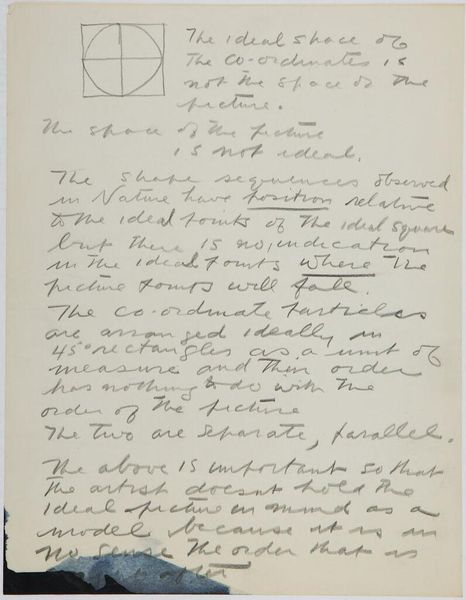 The ideal space of
the co-ordinates is
not the space of the
picture.
The space of the picture
is not ideal.
The shape sequences observed
in Nature have position relative
to the ideal points of the ideal square
but there is no indication
in the ideal points where the
picture points will fall.
The co-ordinate particles
are arranged ideally in
45° rectangles as a unit of
measure and their order
has nothing to do with the
order of the picture
The two are separate, parallel.
The above is important so that
the artist doesnt hold the
ideal picture in mind as a
model because it is in
no sense the order that is
after